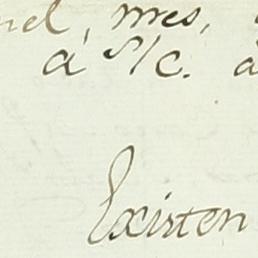 nel, mes,
a S/C. a
Existen